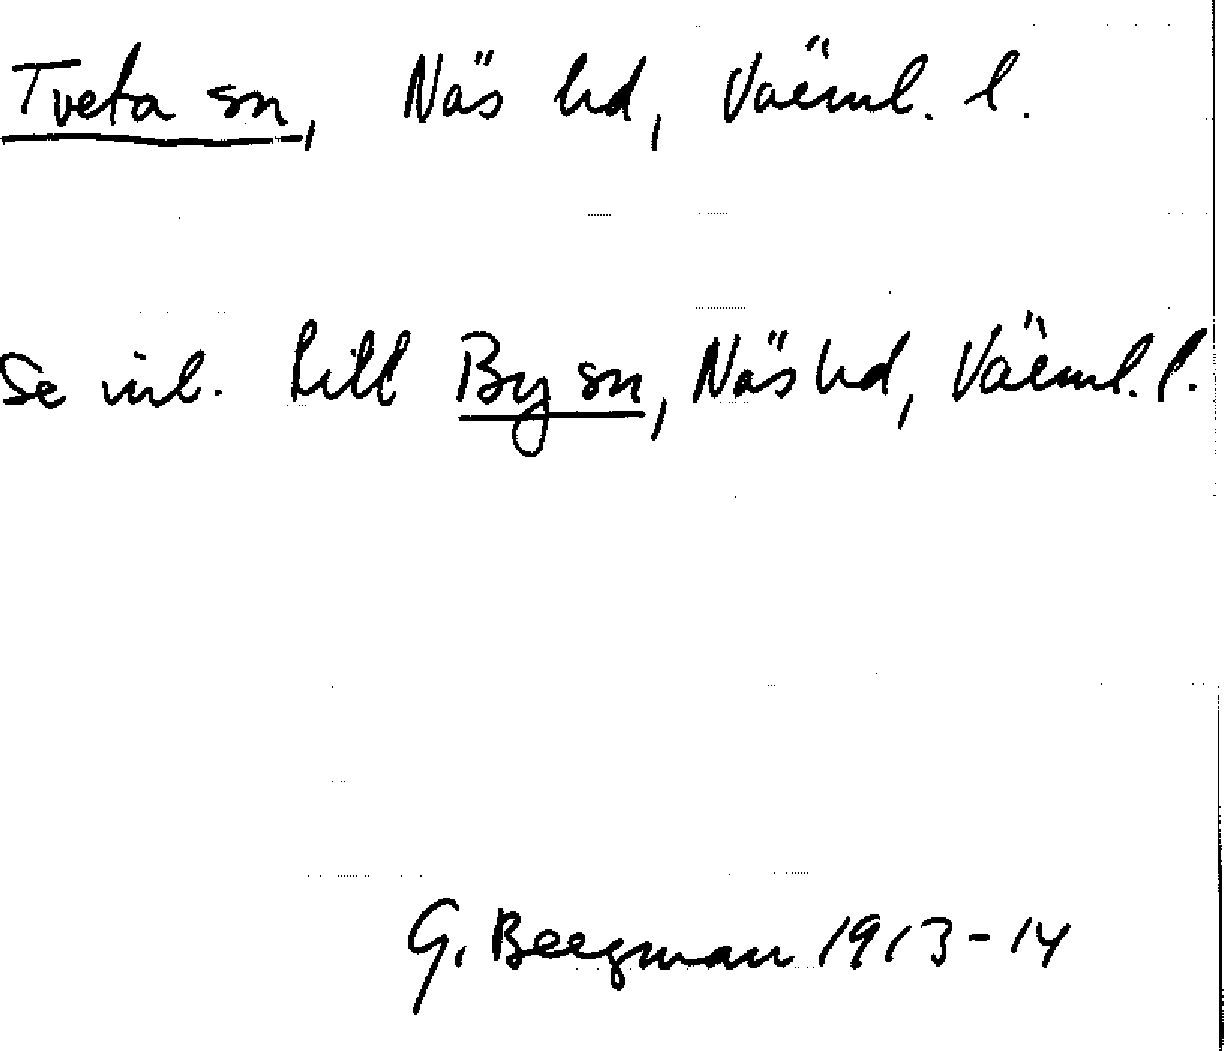 Tveta sn, Näs hd, Värml. l.
Se inl. till By sn, Näs hd, Värml. l.
G. Bergman 1913-14